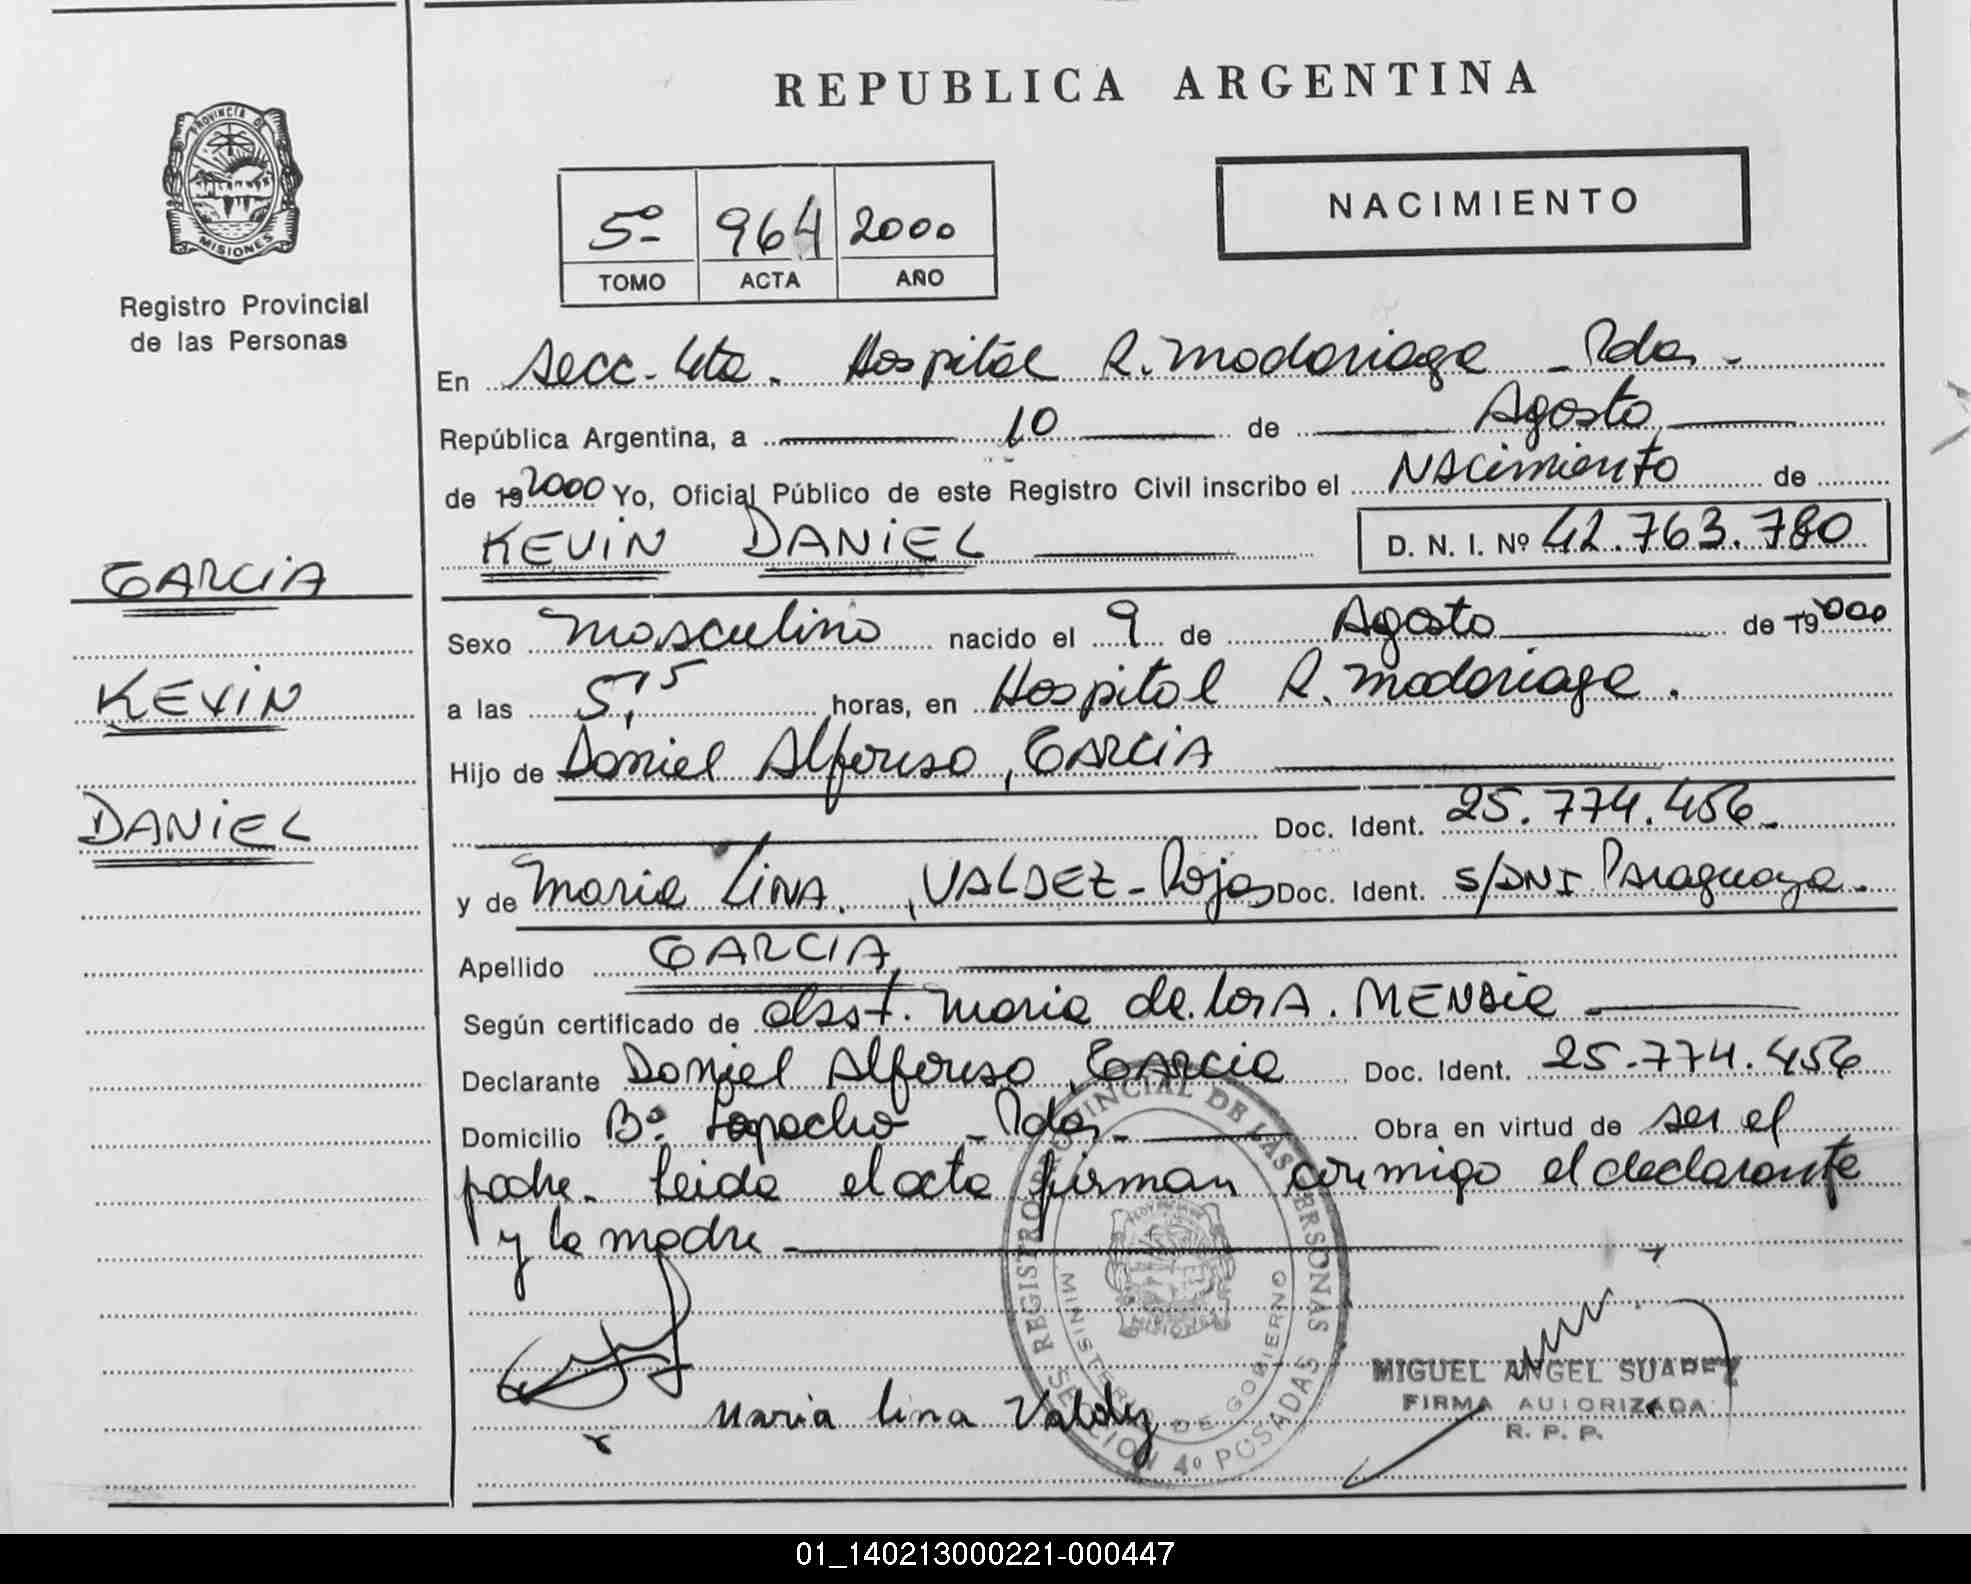 REPUBLICA ARGENTINA
PROVINCIA DE
MISIONES
Registro Provincial
de las Personas
5º 964 2000
TOMO ACTA AÑO
NACIMIENTO
En Secc. 4ta. Hospital R. Madariaga - Pdas.
República Argentina, a 10 de Agosto
de 19 2000 Yo, Oficial Público de este Registro Civil inscribo el NAcimiento de
KEVIN DANIEL D. N. I. Nº 42.763.780
GARCIA
KEVIN
DANIEL
Sexo Masculino nacido el 9 de Agosto de 19 000
a las 5,15 horas, en Hospital R. Madariaga.
Hijo de Daniel Alfonso, GARCIA
Doc. Ident. 25.774.456
y de Maria LINA, VALDEZ - Rojas Doc. Ident. S/DNI Paraguaya.
Apellido GARCIA
Según certificado de obst. Maria de los A.
Declarante Daniel Alfonso, GARCIA Doc. Ident. 25.774.456
Domicilio Bº. Lapacho - Pdas. Obra en virtud de ser el
padre. Leida el acta firman conmigo el declarante
y la madre
Maria lina Valdez
REGISTRO PROVINCIAL DE LAS PERSONAS
MINISTERIO DE GOBIERNO
SECCION 4º POSADAS
MIGUEL ANGEL SUAREZ
FIRMA AUTORIZADA
R. P. P.
01_140213000221-000447